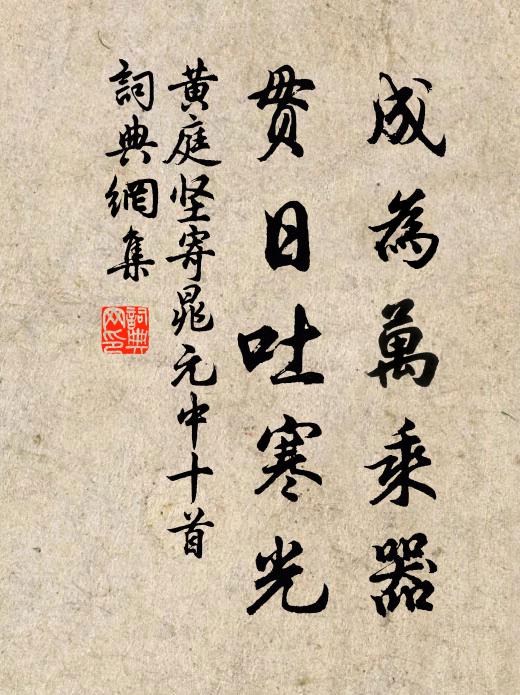 成為萬乘器
貫日吐寒光
黃庭坚寄晁元中十首
詞典網集
詞典網印